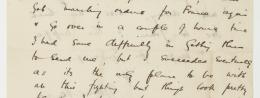 Got marching orders for France again
& go over in a couple of hours time
I had some difficulty in getting them
to send me, but I succeeded eventually
as its the only place to be with
all this fighting but things look pretty